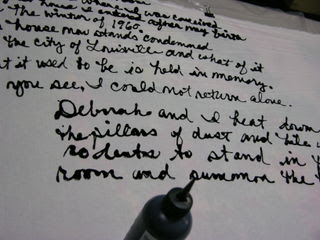 house
the winter of 1960
house now stands condemned
the city of Louisville and what of it
it used to be is held in memory.
you see, I could not return alone.
Deborah and I beat down
the pillars of dust and
rodents to stand in
room and summon the